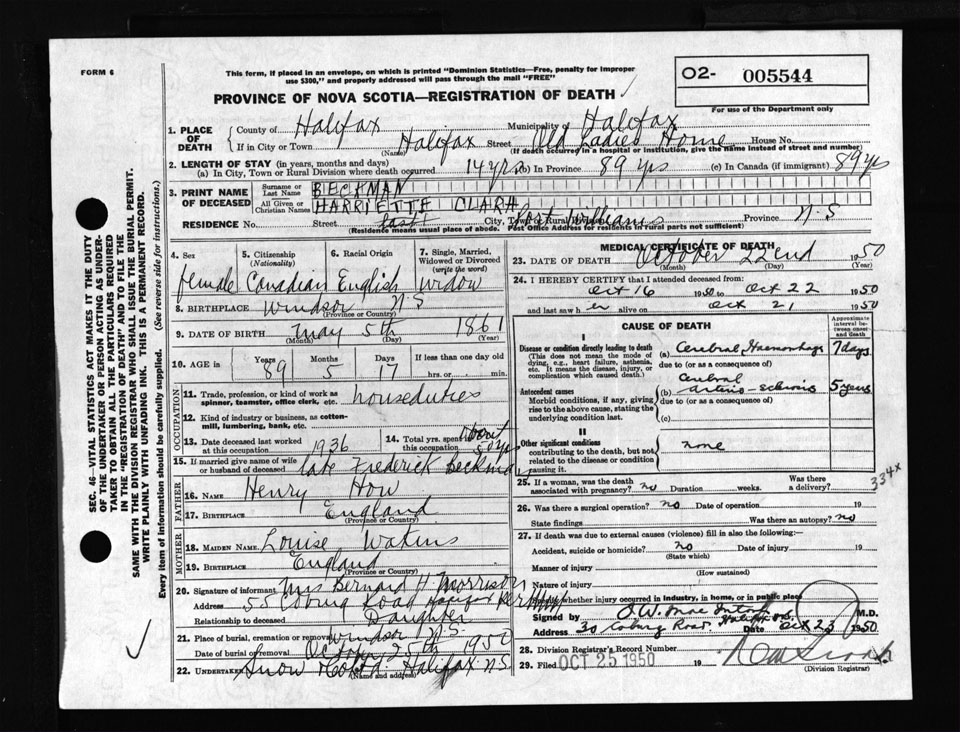 FORM 6
This form, if placed in an envelope, on which is printed "Dominion Statistics—Free, penalty for improper
use $300," and properly addressed will pass through the mail "FREE"
O2- 005544
For use of the Department only
PROVINCE OF NOVA SCOTIA—REGISTRATION OF DEATH
1. PLACE OF DEATH
County of Halifax Municipality of Halifax
If in City or Town Halifax Street Old Ladies Home House No.
(Name) (If death occurred in a hospital or institution, give the name instead of street and number)
2. LENGTH OF STAY (in years, months and days)
(a) In City, Town or Rural Division where death occurred 14 yrs (b) In Province 89 yrs (c) In Canada (if immigrant) 89 yrs
3. PRINT NAME OF DECEASED
Surname or Last Name BECKMAN
All Given or Christian Names HARRIETTE CLARA
RESIDENCE No. Street last City, Town or Rural Port Williams Province N.S
(Residence means usual place of abode. Post Office Address for residents in rural parts not sufficient)
4. Sex female
5. Citizenship (Nationality) Canadian
6. Racial Origin English
7. Single, Married, Widowed or Divorced (write the word) Widow
8. BIRTHPLACE Windsor N.S
(Province or Country)
9. DATE OF BIRTH May 5th 1861
(Month) (Day) (Year)
10. AGE in Years 89 Months 5 Days 17 If less than one day old
hrs. or min.
OCCUPATION
11. Trade, profession, or kind of work as spinner, teamster, office clerk, etc. houseduties
12. Kind of industry or business, as cotton-mill, lumbering, bank, etc.
13. Date deceased last worked at this occupation 1936
14. Total yrs. spent in this occupation about 50 yrs
15. If married give name of wife or husband of deceased late Frederick Beckman
FATHER
16. NAME Henry How
17. BIRTHPLACE England
(Province or Country)
MOTHER
18. MAIDEN NAME Louise Watkins
19. BIRTHPLACE England
(Province or Country)
20. Signature of informant Mrs Bernard H Morrison
Address 55 Coburg Road Halifax
Relationship to deceased Daughter
21. Place of burial, cremation or removal Windsor N.S.
Date of burial or removal October 25th 1950
22. UNDERTAKER Snow & Co Ltd Halifax N.S
(Name and address)
MEDICAL CERTIFICATE OF DEATH
23. DATE OF DEATH October 22nd 1950
(Month) (Day) (Year)
24. I HEREBY CERTIFY that I attended deceased from:
Oct 16 1950 to Oct 22 1950
and last saw h er alive on Oct 21 1950
CAUSE OF DEATH
Approximate interval between onset and Death
I
Disease or condition directly leading to death
(This does not mean the mode of dying, e.g., heart failure, asthenia, etc. It means the disease, injury, or complication which caused death.)
(a) Cerebral Haemorrhage 7 days
due to (or as a consequence of)
Antecedent causes
Morbid conditions, if any, giving rise to the above cause, stating the underlying condition last.
(b) Cerebral arterio-sclerosis 5 years
due to (or as a consequence of)
(c)
II
Other significant conditions
contributing to the death, but not related to the disease or condition causing it.
none
334x
25. If a woman, was the death associated with pregnancy? no Duration weeks. Was there a delivery?
26. Was there a surgical operation? no Date of operation 19
State findings Was there an autopsy? no
27. If death was due to external causes (violence) fill in also the following:—
Accident, suicide or homicide? no Date of injury 19
(State which)
Manner of injury
(How sustained)
Nature of injury
Specify whether injury occurred in industry, in home, or in public place
Signed by M.D.
Address 30 Coburg Road, Halifax N.S. Date Oct 23 1950
28. Division Registrar's Record Number
29. Filed OCT 25 1950 19
(Division Registrar)
SEC. 46—VITAL STATISTICS ACT MAKES IT THE DUTY
OF THE UNDERTAKER OR PERSON ACTING AS UNDER-
TAKER TO OBTAIN ALL THE PARTICULARS REQUIRED
IN THE "REGISTRATION OF DEATH" AND TO FILE THE
SAME WITH THE DIVISION REGISTRAR WHO SHALL ISSUE THE BURIAL PERMIT.
WRITE PLAINLY WITH UNFADING INK. THIS IS A PERMANENT RECORD.
Every item of information should be carefully supplied. (See reverse side for instructions.)